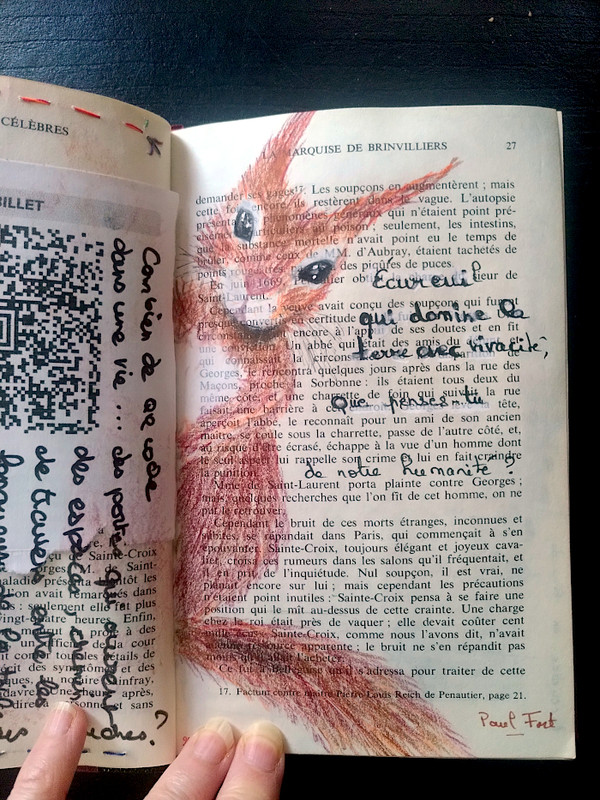 CÉLÈBRES
BILLET
Combien de QR code
dans une vie ... des portes qui
des espaces
de trains
de Sainte-Croix
M. de Saint-
présenta bientôt les
avait embarqués dans
seulement elle fut plus
vingt-quatre heures. Enfin,
de la cour
détails de
des symptômes et des
notaire
une heure après,
et sans
LA MARQUISE DE BRINVILLIERS
27
demander ses gages17. Les soupçons en augmentèrent ; mais
cette fois encore, ils restèrent dans le vague. L'autopsie
présenta phénomènes généraux qui n'étaient point pré-
cisément particuliers au poison ; seulement, les intestins,
que substance mortelle n'avait point eu le temps de
brûler, comme ceux de MM. d'Aubray, étaient tachetés de
points rougeâtres, des piqûres de puces.
En juin 1669, Penautier obtint sieur de
Saint-Laurent.
Cependant la veuve avait conçu des soupçons qui furent
presque convertis en certitude
encore à l'appui de ses doutes et en fit
une Un abbé qui était des amis du
qui connaissait la
Georges, se rencontra quelques jours après dans la rue des
Maçons, proche la Sorbonne : ils étaient tous deux du
même côté, et une charrette de foin qui suivait la rue
faisait une barrière à Georges lève la tête,
aperçoit l'abbé, le reconnaît pour un ami de son ancien
maître, se coule sous la charrette, passe de l'autre côté, et,
au risque d'être écrasé, échappe à la vue d'un homme dont
le seul aspect lui rappelle son crime et lui en fait craindre
la punition.
Mme de Saint-Laurent porta plainte contre Georges ;
mais, quelques recherches que l'on fit de cet homme, on ne
put le retrouver.
Cependant le bruit de ces morts étranges, inconnues et
subites, se répandait dans Paris, qui commençait à s'en
épouvanter. Sainte-Croix, toujours élégant et joyeux cava-
lier, croisa ces rumeurs dans les salons qu'il fréquentait, et
il en prit de l'inquiétude. Nul soupçon, il est vrai, ne
planait encore sur lui ; mais cependant les précautions
n'étaient point inutiles : Sainte-Croix pensa à se faire une
position qui le mît au-dessus de cette crainte. Une charge
chez le roi était près de vaquer ; elle devait coûter cent
mille écus : Sainte-Croix, comme nous l'avons dit, n'avait
aucune ressource apparente ; le bruit ne s'en répandit pas
moins qu'il allait l'acheter.
Ce fut à Belleguise qu'il s'adressa pour traiter de cette
17. Factum contre maître Pierre-Louis Reich de Penautier, page 21.
Écureuil
qui domine la
terre avec vivacité,
Que penses-tu
de notre humanité ?
Paul Fort